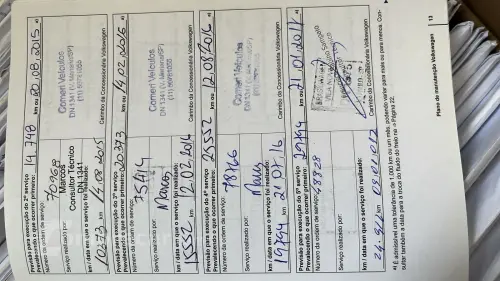 Previsão para execução do 2º serviço
Prevalecendo o que ocorrer primeiro: 14.748 km ou 20.08.2015 a)
Número da ordem de serviço: 70768
Serviço realizado por: Marcos
Consultor Técnico
DN 1341
Comeri Veículos
DN 1341 (V. Mariana/SP)
Carimbo da Concessionária Volkswagen
km / data em que o serviço foi realizado:
10273 km 14.08.2015
Previsão para execução do 3º serviço
Prevalecendo o que ocorrer primeiro: 20373 km ou 14.02.2016 a)
Número da ordem de serviço: 75414
Serviço realizado por:
Comeri Veículos
DN 1341 (V. Mariana/SP)
Carimbo da Concessionária Volkswagen
km / data em que o serviço foi realizado:
15552 km 12.02.2016
Previsão para execução do 4º serviço
Prevalecendo o que ocorrer primeiro: 25552 km ou 12.08.2016 a)
Número da ordem de serviço: 79766
Serviço realizado por:
Comeri Veículos
Carimbo da Concessionária Volkswagen
km / data em que o serviço foi realizado:
19794 km 21.07.16
Previsão para execução do 5º serviço
Prevalecendo o que ocorrer primeiro: 29794 km ou 21.01.2017 a)
Número da ordem de serviço:
Serviço realizado por:
Carimbo da Concessionária Volkswagen
km / data em que o serviço foi realizado:
km
a) É admissível uma tolerância de 1.000 km ou um mês, podendo variar para mais ou para menos. Con-
sultar também a data para a troca do fluido do freio na → Página 22.
Plano de manutenção Volkswagen | 13